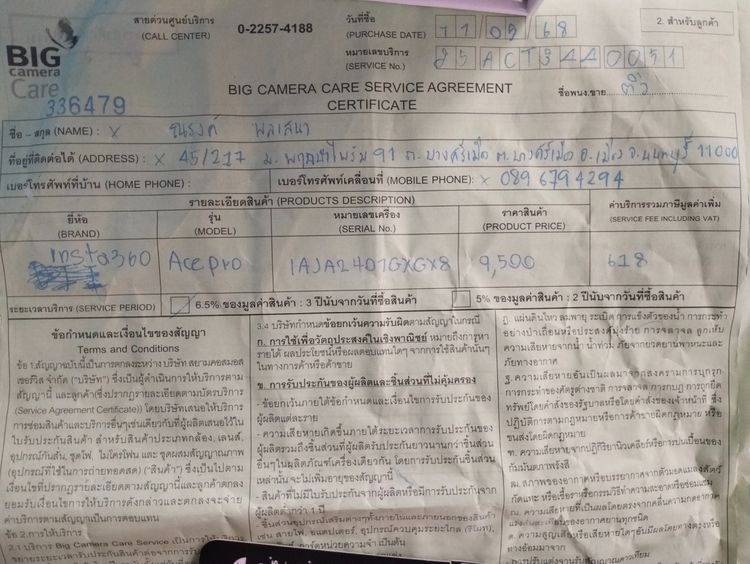 สายด่วนศูนย์บริการ
(CALL CENTER)
0-2257-4188
วันที่ซื้อ
(PURCHASE DATE)
11/05/68
2. สำหรับลูกค้า
หมายเลขบริการ
(SERVICE No.)
25ACT3440051
BIG
camera
Care
336479
BIG CAMERA CARE SERVICE AGREEMENT
CERTIFICATE
ชื่อพนง.ขาย
ชื่อ – สกุล (NAME) : x ณรงค์ พลเสนา
ที่อยู่ที่ติดต่อได้ (ADDRESS) : x 45/217 ม. พฤกษาไพร์ม 91 ถ. บางศรีเมือง ต. บางศรีเมือง อ. เมือง จ. นนทบุรี 11000
เบอร์โทรศัพท์ที่บ้าน (HOME PHONE) :
เบอร์โทรศัพท์เคลื่อนที่ (MOBILE PHONE) : x 0896794294
รายละเอียดสินค้า (PRODUCTS DESCRIPTION)
ค่าบริการรวมภาษีมูลค่าเพิ่ม
(SERVICE FEE INCLUDING VAT)
ยี่ห้อ
(BRAND)
รุ่น
(MODEL)
หมายเลขเครื่อง
(SERIAL No.)
ราคาสินค้า
(PRODUCT PRICE)
Insta360
Acepro
IAJA2407GXGX8
9,500
618
ระยะเวลาบริการ (SERVICE PERIOD)
6.5% ของมูลค่าสินค้า : 3 ปีนับจากวันที่ซื้อสินค้า
5% ของมูลค่าสินค้า : 2 ปีนับจากวันที่ซื้อสินค้า
ข้อกำหนดและเงื่อนไขของสัญญา
Terms and Conditions
ข้อ 1.สัญญาฉบับนี้เป็นการตกลงระหว่าง บริษัท สยามคอสมอส
เซอร์วิส จำกัด ("บริษัท") ซึ่งเป็นผู้ดำเนินการให้บริการตาม
สัญญานี้ และลูกค้า(ซึ่งปรากฏรายละเอียดตามบัตรบริการ)
(Service Agreement Certificate)) โดยบริษัทเสนอให้บริการ
การซ่อมสินค้าและบริการอื่นๆเช่นเดียวกับที่ผู้ผลิตเสนอไว้ใน
ใบรับประกันสินค้า สำหรับสินค้าประเภทกล้อง, เลนส์,
อุปกรณ์กันสั่น, ชุดไฟ, ไมโครโฟน และ ชุดผสมสัญญาณภาพ
(อุปกรณ์ที่ใช้ในการถ่ายทอดสด) ("สินค้า") ซึ่งเป็นไปตาม
เงื่อนไขที่ปรากฏรายละเอียดตามสัญญานี้และลูกค้าตกลง
ยอมรับเงื่อนไขการให้บริการดังกล่าวและตกลงจะจ่าย
ค่าบริการตามสัญญาเป็นการตอบแทน
ข้อ 2.การให้บริการ
2.1 บริการ Big Camera Care Service เป็นการให้บริการ
3.4 บริษัทกำหนดข้อยกเว้นความรับผิดตามสัญญาในกรณี
ก. การใช้เพื่อวัตถุประสงค์ในเชิงพาณิชย์ หมายถึงการหา
รายได้ ผลประโยชน์หรือผลตอบแทนใดๆ จากการใช้สินค้านั้นๆ
ในทางการค้าหรือการค้าขาย
ข. การรับประกันของผู้ผลิตและชิ้นส่วนที่ไม่คุ้มครอง
- ข้อยกเว้นภายใต้ข้อกำหนดและเงื่อนไขการรับประกันของ
ผู้ผลิตแต่ละราย
- ความเสียหายเกิดขึ้นภายใต้ระยะเวลาการรับประกันของ
ผู้ผลิตรวมถึงชิ้นส่วนที่ผู้ผลิตรับประกันยาวนานกว่าชิ้นส่วน
อื่นๆในผลิตภัณฑ์เครื่องเดียวกัน โดยการรับประกันชิ้นส่วน
เหล่านั้น จะไม่เพิ่มอายุของสัญญานี้
- สินค้าที่ไม่มีใบรับประกันจากผู้ผลิตหรือมีการรับประกันจาก
ผู้ผลิตต่ำกว่า 1 ปี
- ชิ้นส่วนอุปกรณ์เสริมต่างๆทั้งภายในและภายนอกของสินค้า
เช่น สายไฟ, อแดปเตอร์, อุปกรณ์ควบคุมระยะไกล (รีโมท),
ฎ. แผ่นดินไหว ลมพายุ ระเบิด การแข็งตัวของน้ำ การกระทำ
ความเสียหายจากน้ำ น้ำท่วม ภัยจากยวดยานพาหนะและ
ภัยทางอากาศ
ฐ. ความเสียหายอันเป็นผลมาจากสงครามการบุกรุก
การกระทำของศัตรูต่างชาติ การจลาจล การกบฏ การยึด
ทรัพย์โดยคำสั่งของรัฐบาลหรือโดยคำสั่งของเจ้าหน้าที่ ซึ่ง
ปฏิบัติการตามกฎหมายหรือการค้าขายผิดกฎหมาย หรือ
ขนส่งโดยผิดกฎหมาย
ฑ. ความเสียหายจากปฏิกิริยานิวเคลียร์หรือการปนเปื้อนของ
กัมมันตภาพรังสี